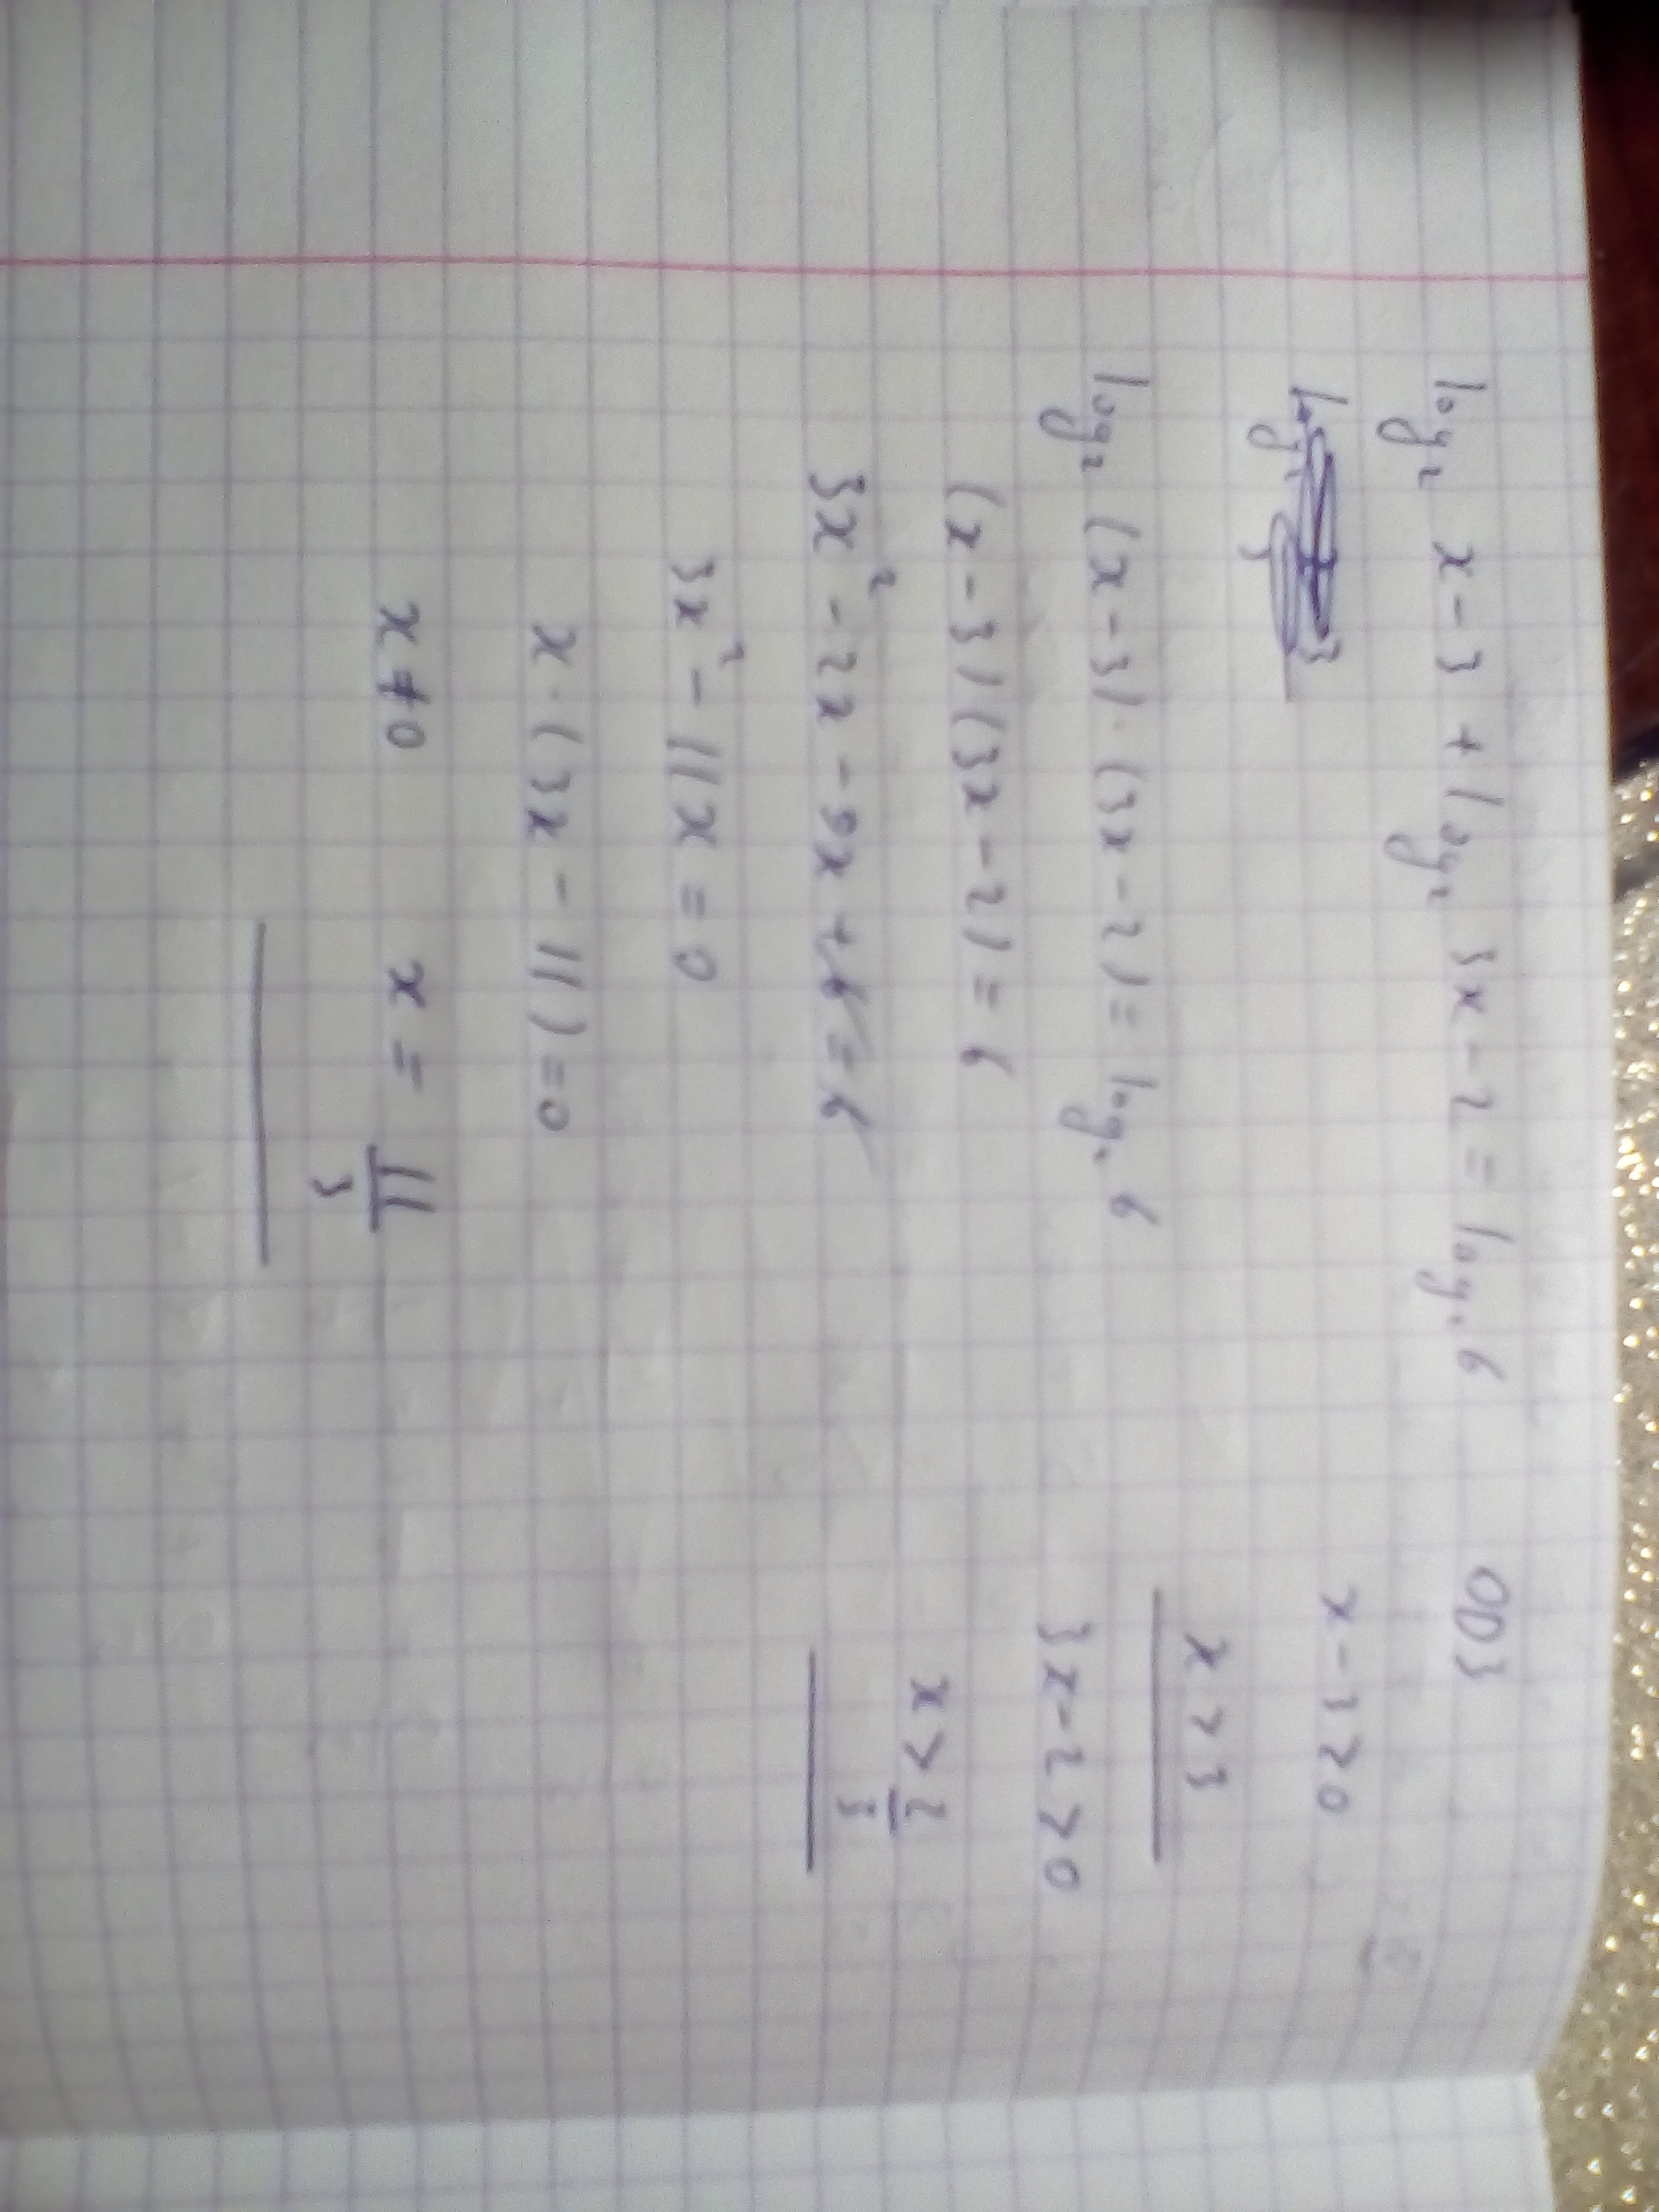 log₂ x - 3 + log₂ 3x - 2 = log₂ 6
OD3
log₂ 3
x - 3 > 0
log₂ (x - 3) · (3x - 2) = log₂ 6
x > 3
(x - 3)(3x - 2) = 6
3x - 2 > 0
3x² - 2x - 9x + 6 = 6
x > 2/3
3x² - 11x = 0
x · (3x - 11) = 0
x ≠ 0 x = 11/3